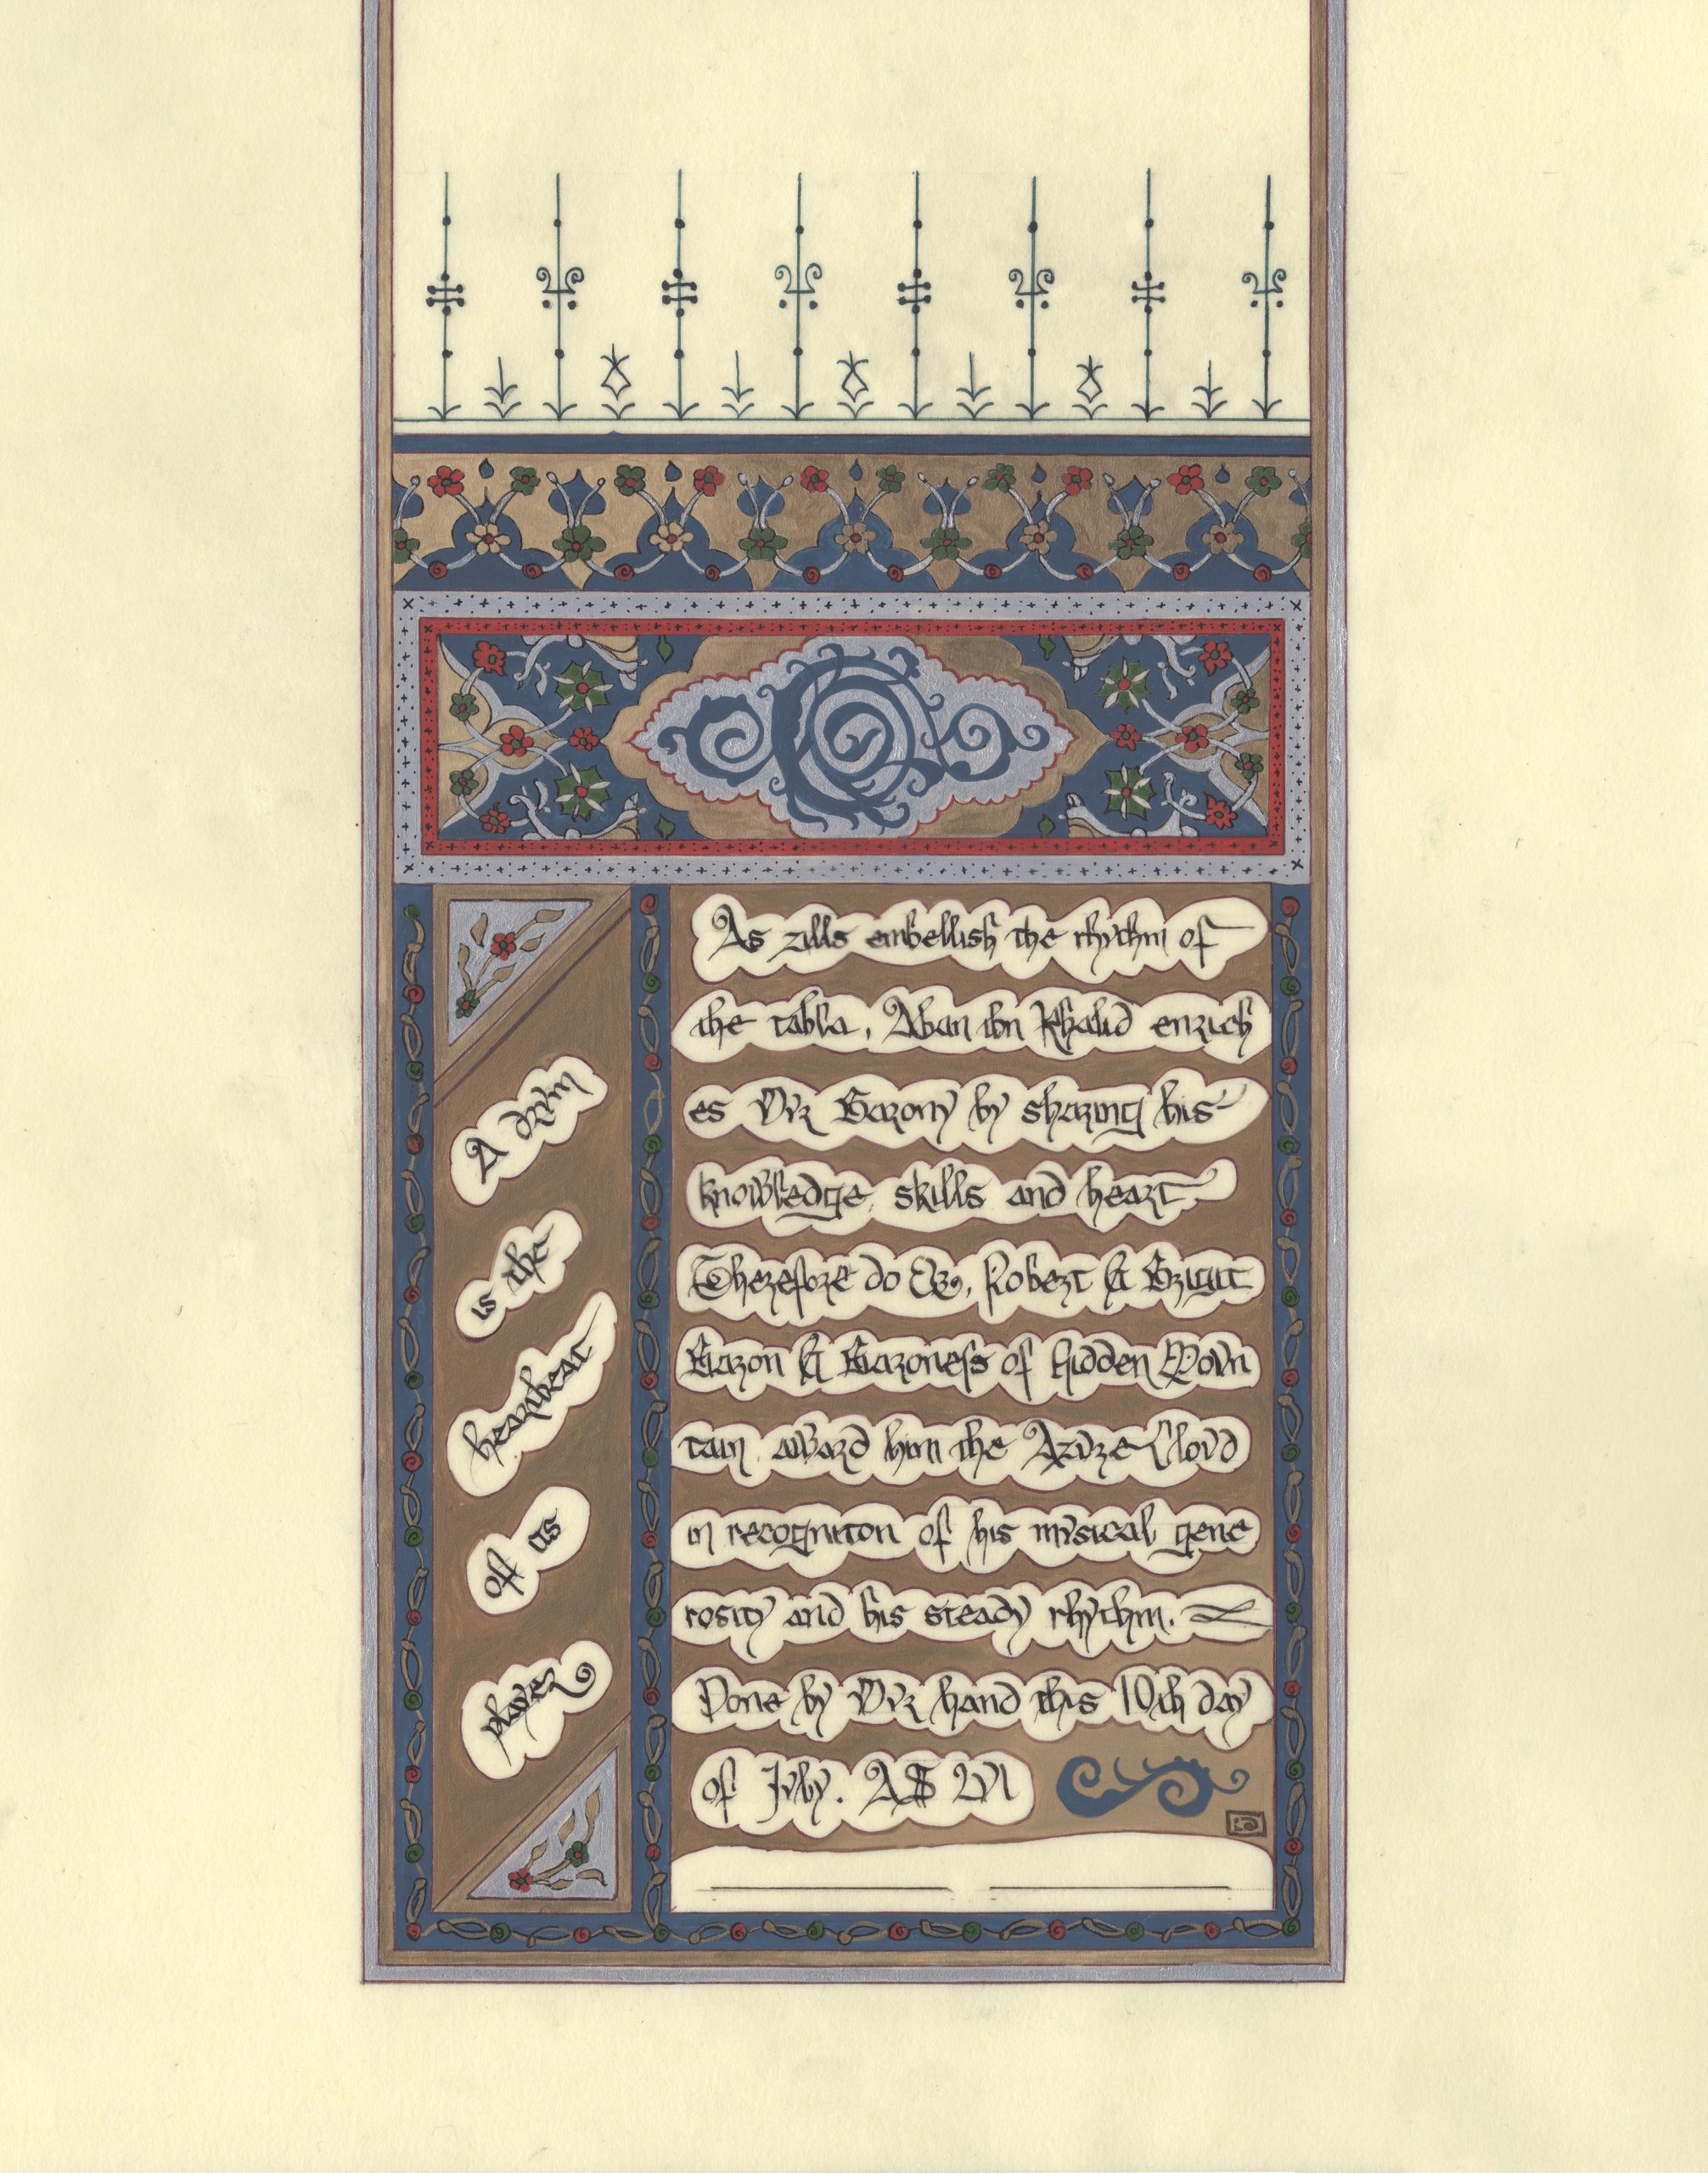 A drvm
is the
heartbeat
of its
player
As zills embellish the rhythm of
the tabla, Aban ibn Khalid enrich
es Ovr Barony by sharing his
knowledge, skills and heart
Therefore do We, Robert & Brigit
Baron & Baroness of Hidden Movn
tain, award him the Azvre Clovd
in recogniton of his mvsical gene
rosity and his steady rhythm.
Done by Ovr hand this 10th day
of Jvly. AS LVI